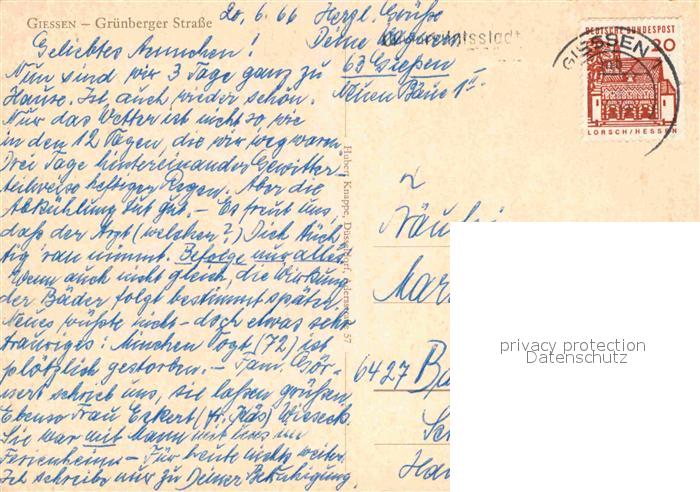 GIESSEN – Grünberger Straße
20.6.66
Geliebtes Annchen!
Nun sind wir 3 Tage ganz zu
Hause. Ist auch wieder schön.
Nur das Wetter ist nicht so wie
in den 12 Tagen, die wir weg waren.
Drei Tage hintereinander Gewitter
teilweise heftiger Regen. Aber die
Abkühlung tut gut. – Es freut uns,
daß der Arzt (welcher?) Dich tüch-
tig ran nimmt. Befolge nur alles
wenn auch nicht gleich, die Wirkung
der Bäder folgt bestimmt später.
Neues wüßte nich – doch etwas sehr
trauriges: Minchen Vogt (72) ist
plötzlich gestorben. – Fam. Gör-
nert schrieb uns, sie laßen grüßen
Ebenso Frau Eckert (fr. Käs) Wieseck.
Sie war mit Mann mit uns im
Ferienheim – Für heute nichts weiter
Ist schreibe nur zu Deiner Beruhigung
Herzl. Grüße
Deine
63 Gießen
Neuen Bäue 1
Hubert Knappe, Düsseldorf, 57
DEUTSCHE BUNDESPOST
20
LORSCH/HESSEN
GIESSEN
Universitätsstadt
Fräulein
Mar
6427 Ba
privacy protection
Datenschutz